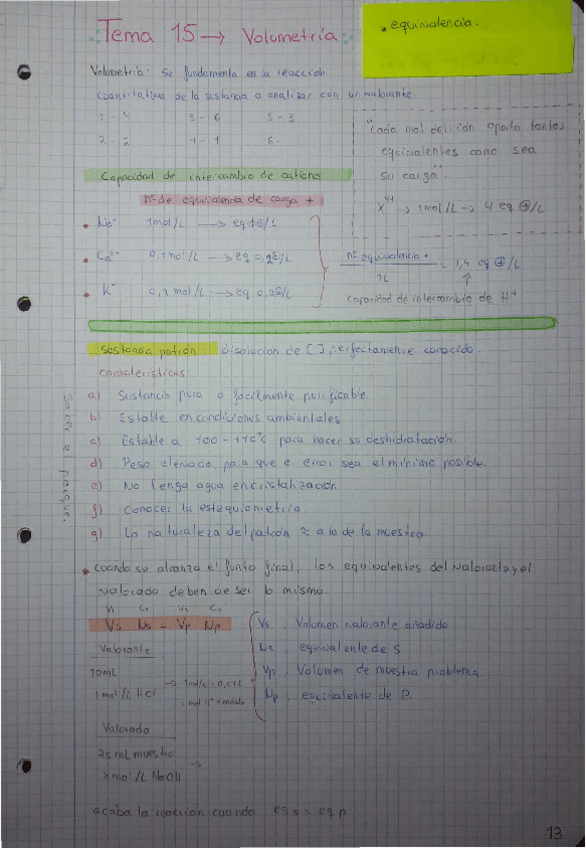 Tema 15 → Volumetría
• equivalencia.
Volumetría: Se fundamenta en la reacción
cuantitativa de la sustancia a analizar con un valorante
"Cada mol del ión aporta tantos
equivalentes como sea
su carga".
→ 1mol/L → 4 eq ⊕/L
Capacidad de intercambio de cationes
nº de equivalencia de carga +
1mol/L → eq
Ca²⁺ 0,1mol/L → eq 0,2
K⁺ 0,2 mol/L → eq 0,2
nº equivalencia +
1L
= 1,4 eq ⊕/L
capacidad de intercambio de H⁺
Sustancia patrón: disolución de [ ] perfectamente conocido.
características
a) Sustancia pura o facilmente purificable
b) Estable en condiciones ambientales
c) Estable a 100 - 110°C para hacer su deshidratación
d) Peso elevado, para que el error sea el mínimo posible.
e) No tenga agua en cristalización
f) Conocer la estequiometría.
g) La naturaleza del patrón ≈ a la de la muestra
Saber el porque.
• cuando se alcanza el punto final, los equivalentes del valorante y el
valorado deben de ser lo mismo
Vs Ns = Vp Np
Vs: Volumen valorante añadido
Ns: equivalente de S
Vp: Volumen de muestra problema
Np: equivalente de P.
Valorante
10mL
1 mol/L HCl
Valorado
25 mL muestra
x mol/L NaOH →
acaba la reacción cuando eq s = eq p
13